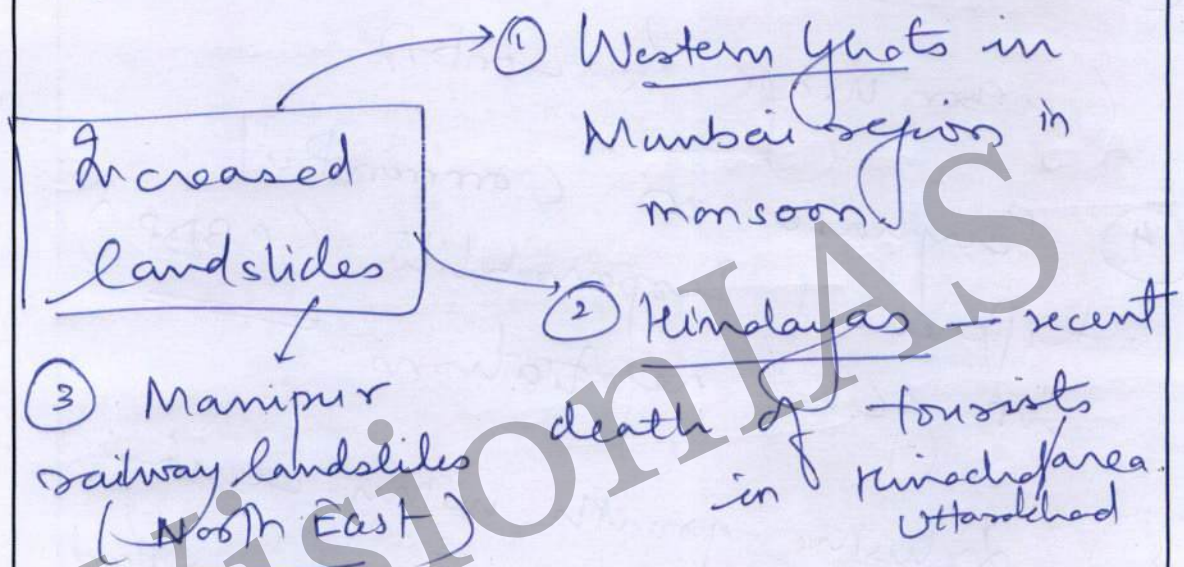 Increased
landslides
① Western Ghats in
Mumbai region in
monsoon.
② Himalayas — recent
death of tourists
in Himachal area
Uttarakhand
③ Manipur
railway landslides
(North East)
VisionIAS